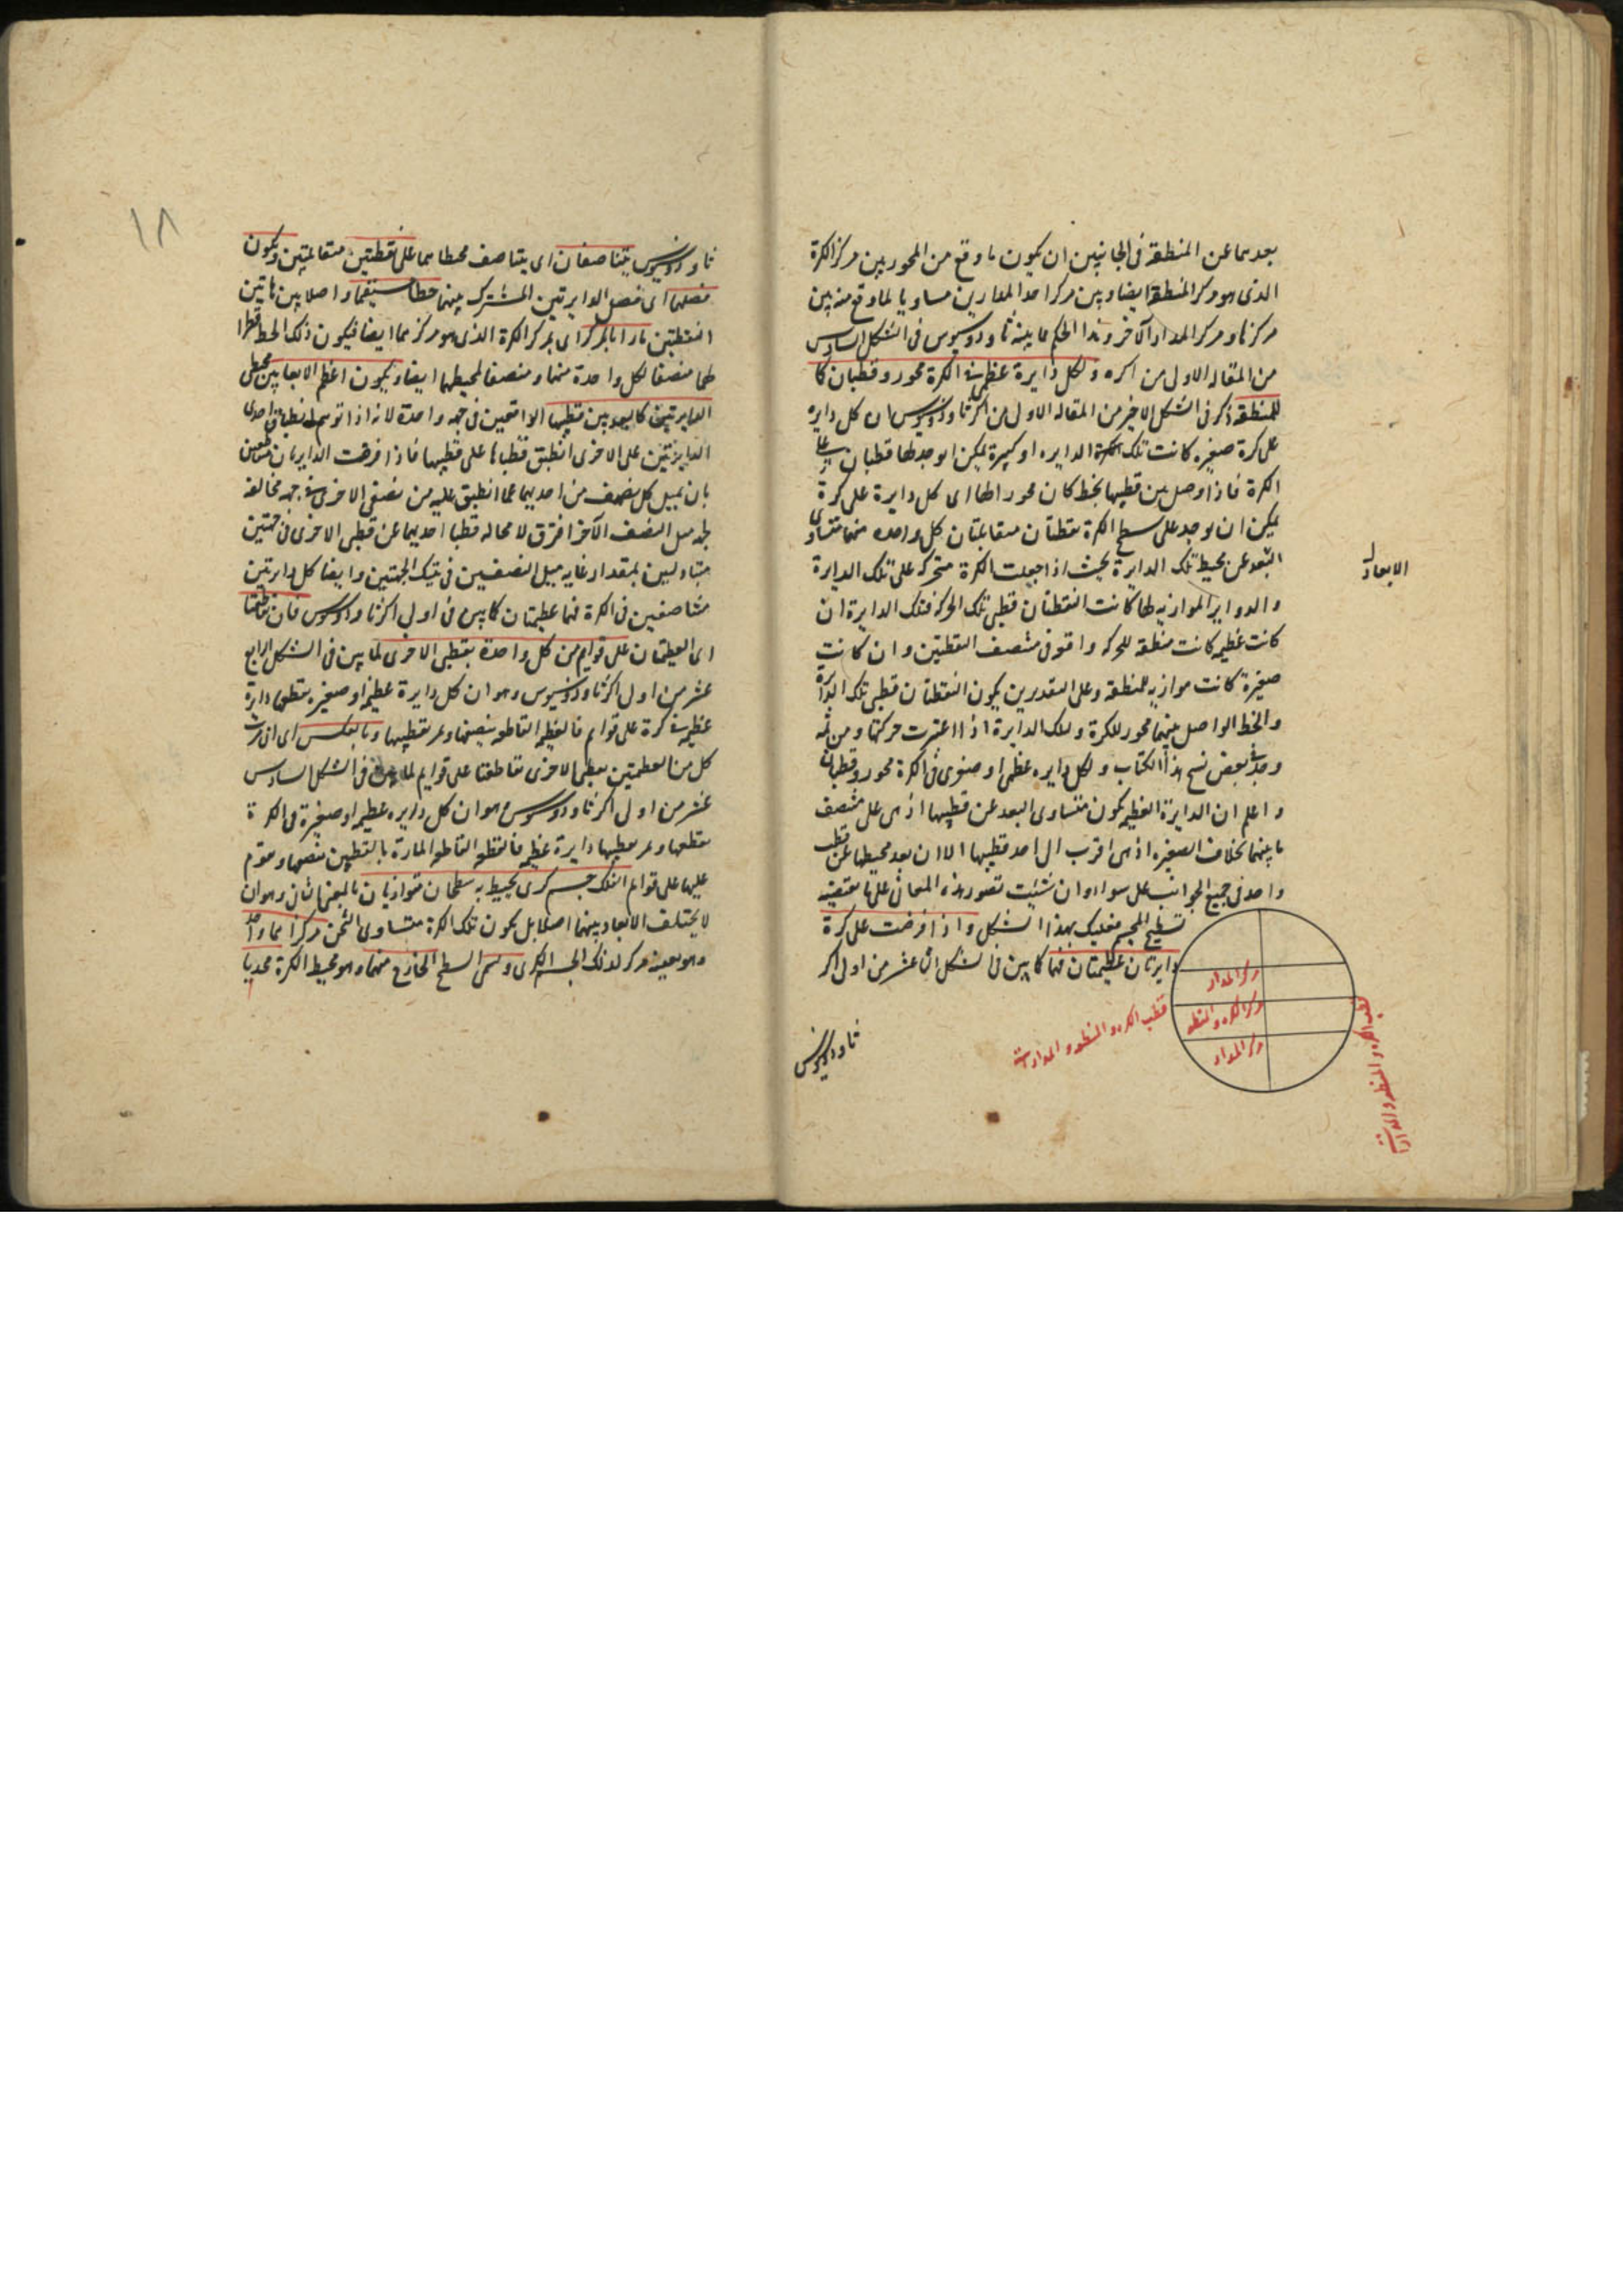 بعدهما عن المنطقة فى الجانبين ان يكون ما وقع من المحور بين مركز الكرة
الذى هو مركز المنطقة ايضا وبين مركز احد المدارين مساويا لما وقع منه بين
مركزها ومركز المدار الآخر وهذا الحكم مما بينه ثاوذوسيوس فى الشكل السادس
من المقالة الاولى من اكره ولكل دايرة عظمى فى الكرة محور وقطبان كما
للمنطقة ذكر فى الشكل الاخير من المقالة الاولى من اكر ثاوذوسيوس ان كل دايره
على كرة صغيره كانت تلك الدايره او كبيرة يمكن ان يوجد لها قطبان
الكرة فاذا وصل بين قطبيها بخط كان محورا لها اى كل دايرة على كرة
يمكن ان يوجد على سطح الكرة نقطتان متقابلتان كل واحده منهما متساوى
البعد عن محيط تلك الدايرة بحيث اذا جعلت الكرة متحركه على تلك الدايرة
والدواير الموازيه لها كانت النقطتان قطبى تلك الحركه فتلك الدايرة ان
كانت عظيمه كانت منطقه للحركه واقعة فى منتصف القطبين وان كانت
صغيرة كانت موازيه للمنطقه وعلى التقديرين يكون النقطتان قطبى تلك الدايرة
والخط الواصل بينهما محور للكرة وتلك الدايرة اذا اعتبرت حركتها ومن ثمه
وجد فى بعض نسخ هذا الكتاب ولكل دايره عظمى او صغرى فى الكرة محور وقطبان
واعلم ان الدايرة العظيمه يكون متساوى البعد عن قطبيها اذ هى على منتصف
ما بينهما بخلاف الصغيره اذ هى اقرب الى احد قطبيها الا ان بعد محيطها عن قطب
واحد فى جميع الجوانب على سواء وان شئت تصور هذه المعانى على ما يقتضيه
تسطيح المجسم فعليك بهذا الشكل واذا فرضت على كرة
دايرتان عظيمتان فهما كما بين فى الشكل الثانى عشر من اولى اكر
ثاوذوسيوس
الابعاد
مركز المدار
مركز الكره والمنطقه
مركز المدار
قطب الكره والمنطقه والمدارات
قطب الكره والمنطقه والمدارات
١٨
ثاوذوسيوس يتناصفان اى يتناصف محيطاهما على نقطتين متقابلتين ويكون
فصلهما اى فصل الدايرتين المشترك بينهما خطا مستقيما واصلا بين هاتين
النقطتين مارا بالمركز اى بمركز الكرة الذى هو مركزهما ايضا فيكون ذلك الخط قطرا
لهما منصفا لكل واحدة منهما ومنصفا لمحيطهما ايضا ويكون اعظم الابعاد بين محيطى
الدايرتين كالبعد بين قطبيهما الواقعين فى جهه واحدة لانه اذا توهم انطباق احدى
الدايرتين على الاخرى انطبق قطباها على قطبيها فاذا افرقت الدايرتان
بان يميل كل نصف من احديهما عما انطبق عليه من نصفى الاخرى فى جهه مخالفه
لجهه ميل النصف الآخر افترق لا محاله قطبا احديهما عن قطبى الاخرى فى جهتين
متبادلتين بمقدار غايه ميل النصفين فى تينك الجهتين وايضا كل دايرتين
متناصفين فى الكرة فهما عظيمتان كما بين فى اولى اكر ثاوذوسيوس فان تقاطعتا
اى العظيمتان على قوايم من كل واحدة بقطبى الاخرى لما بين فى الشكل الرابع
عشر من اولى اكر ثاوذوسيوس وهو ان كل دايرة عظيمه او صغيره يقطعها دايرة
عظيمه فى كرة على قوايم فالعظيمه القاطعه ينصفها ويمر بقطبيها وبالعكس اى ان مرت
كل من العظيمتين بقطبى الاخرى تقاطعتا على قوايم لما بين فى الشكل السادس
عشر من اولى اكر ثاوذوسيوس وهو ان كل دايره عظيمه او صغيرة فى الكرة
يقطعها ويمر بقطبيها دايرة عظيمه فالعظيمه القاطعه المارة بالقطبين ينصفها ويقوم
عليها على قوايم الفلك جسم كرى يحيط به سطحان متوازيان بالمعنى الثانى وهو ان
لا يختلف الابعاد بينهما اصلا بل يكون تلك الكرة متساوى الثخن مركزاهما واحد
وهو بعينه مركز لذلك الجسم الكرى ويسمى السطح الخارج منهما وهو محيط الكرة محدبا